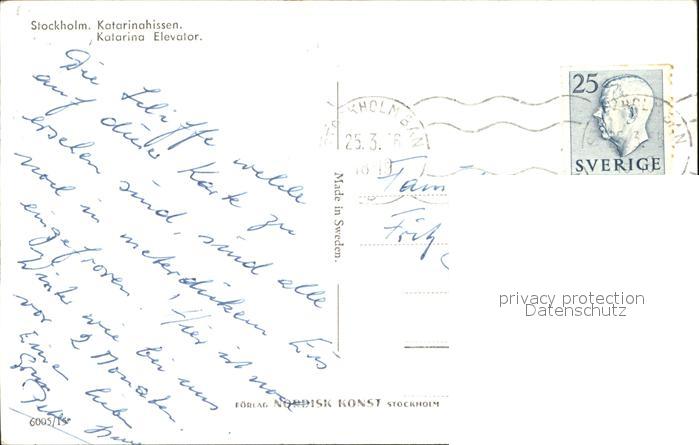 Stockholm. Katarinahissen.
Katarina Elevator.
Die Schiffe welche
auf dieser Karte zu
ersehen sind, sind alle
noch in meterdickem Eis
eingefroren. Hier ist noch
Winter wie bei uns
vor 2 Monaten.
Eine lieben
Peter
6005/15
Made in Sweden.
FÖRLAG NORDISK KONST STOCKHOLM
STOCKHOLM BAN
25.3.
25
SVERIGE
Fam
Fritz
privacy protection
Datenschutz